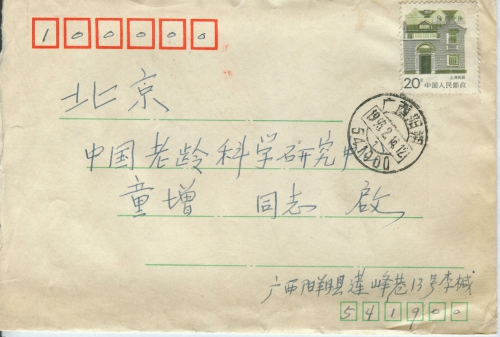 100000
上海民居
20分 中国人民邮政
广西阳朔
1996.2.16.12
541900
北京
中国老龄科学研究中
童增 同志 啟
广西阳朔县莲峰巷13号李棫
541900